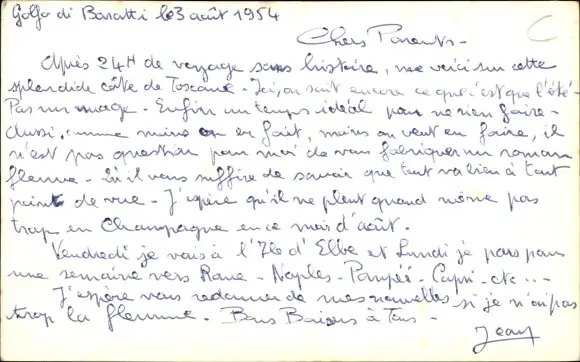 Golfo di Baratti le 3 août 1954
Chers Parents -
Après 24H de voyage sans histoire, me voici sur cette
splendide côte de Toscane - Ici, on sait encore ce que c'est que l'été -
Pas un nuage - Enfin un temps idéal pour ne rien faire -
Aussi, comme moins on en fait, moins on veut en faire, il
n'est pas question pour moi de vous fabriquer un roman
fleuve - Qu'il vous suffise de savoir que tout va bien à tout
point de vue - J'espère qu'il ne pleut quand même pas
trop en Champagne en ce mois d'août.
Vendredi je vais à l'Ile d'Elbe et Lundi je pars pour
une semaine vers Rome - Naples - Pompéi - Capri - etc... -
J'espère vous redonner de mes nouvelles si je n'ai pas
trop la flemme - Bons Baisers à Tous -
Jean